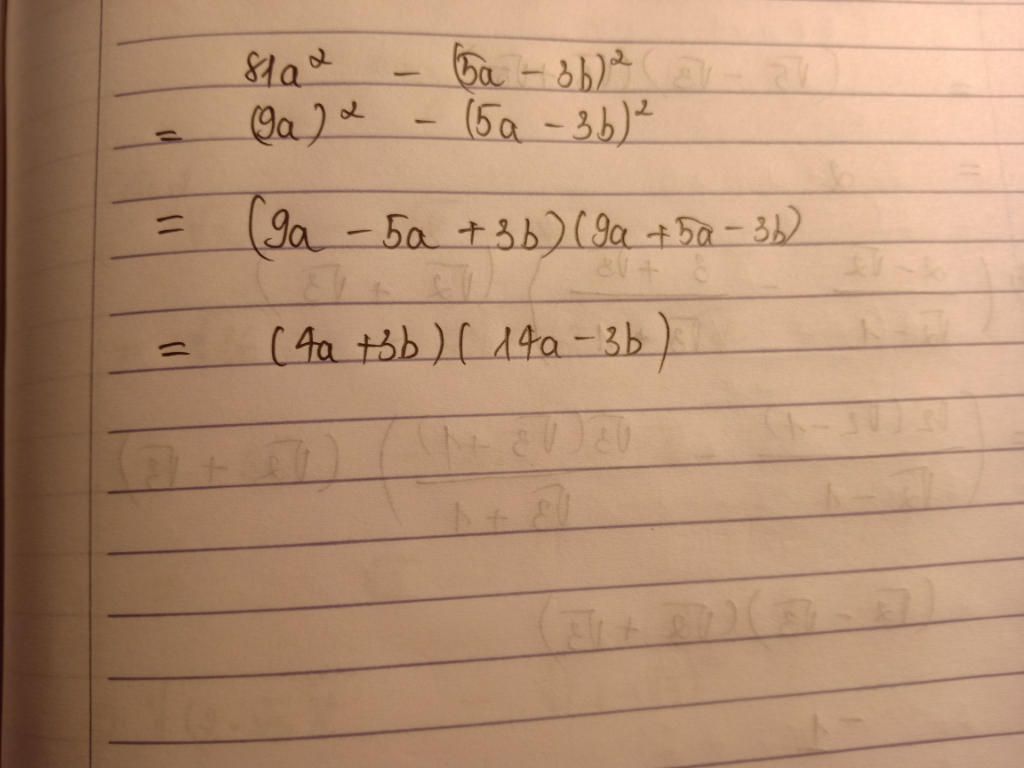 81a² - (5a - 3b)²
= (9a)² - (5a - 3b)²
= (9a - 5a + 3b)(9a + 5a - 3b)
= (4a + 3b)(14a - 3b)